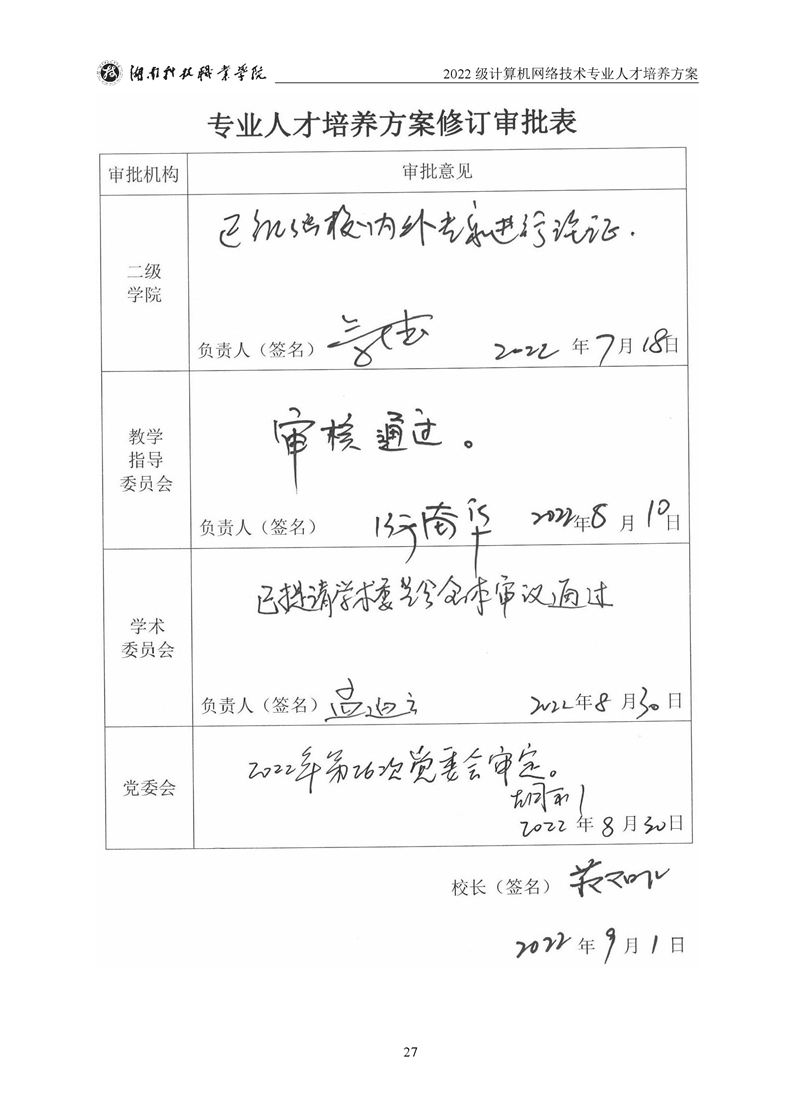 湖南科技职业学院
2022 级计算机网络技术专业人才培养方案
专业人才培养方案修订审批表
审批机构
审批意见
二级
学院
已组织校内外专家进行论证.
负责人（签名）
2022 年 7 月 18日
教学
指导
委员会
审核通过。
负责人（签名）
2022年8 月 10日
学术
委员会
已提请学术委员会全体审议通过
负责人（签名）
2022年8 月30日
党委会
2022年第26次党委会审定。
2022 年 8 月 30日
校长（签名）
2022 年 9 月 1 日
27